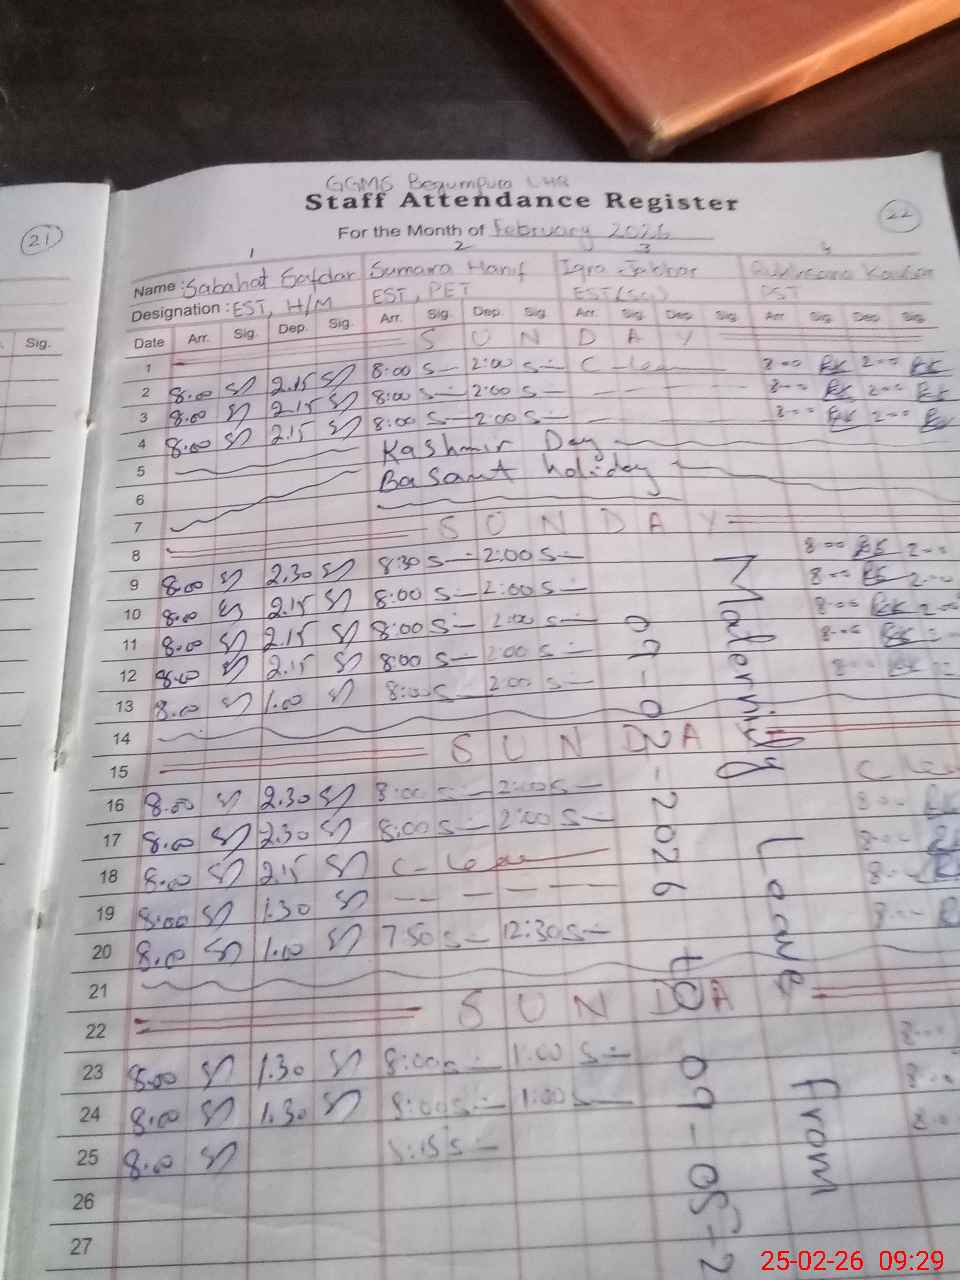 GGMS Begumpura LHR
Staff Attendance Register
21
22
For the Month of February 2026
1 2 3 4
Name: Sabahat Safdar Sumara Hanif Iqra Jabbar Kausar
Designation: EST, H/M EST, PET EST(Sci) PST
Sig. Date Arr. Sig. Dep. Sig. Arr. Sig. Dep. Sig. Arr. Sig. Dep. Sig. Arr. Sig. Dep. Sig.
1 SUNDAY
2 8:00 2.15 8:00 2:00 8:00 2:00
3 8:00 2.15 8:00 2:00 8:00 2:00
4 8:00 2.15 8:00 2:00 8:00 2:00
5 Kashmir Day
6 Basant holiday
7
8 SUNDAY
9 8:00 2.30 8:30 2:00 8:00 2:00
10 8:00 2.15 8:00 2:00 8:00 2:00
11 8:00 2.15 8:00 2:00 8:00 2:00
12 8:00 2.15 8:00 2:00 8:00
13 8:00 1.00 8:00 2:00 8:00
14
15 SUNDA
16 8:00 2.30 8:00 2:00
17 8:00 2.30 8:00 2:00 8:00
18 8:00 2.15 8:00
19 8:00 1.30
20 8:00 1.10 7:50 12:30 8:00
21
22 SUNDA
23 8:00 1.30 8:00 1:00 8:00
24 8:00 1.30 8:00 1:00 8:00
25 8:00 8:00
26
27
Maternity Leave from
09-02-2026 to 09-05-2
25-02-26 09:29